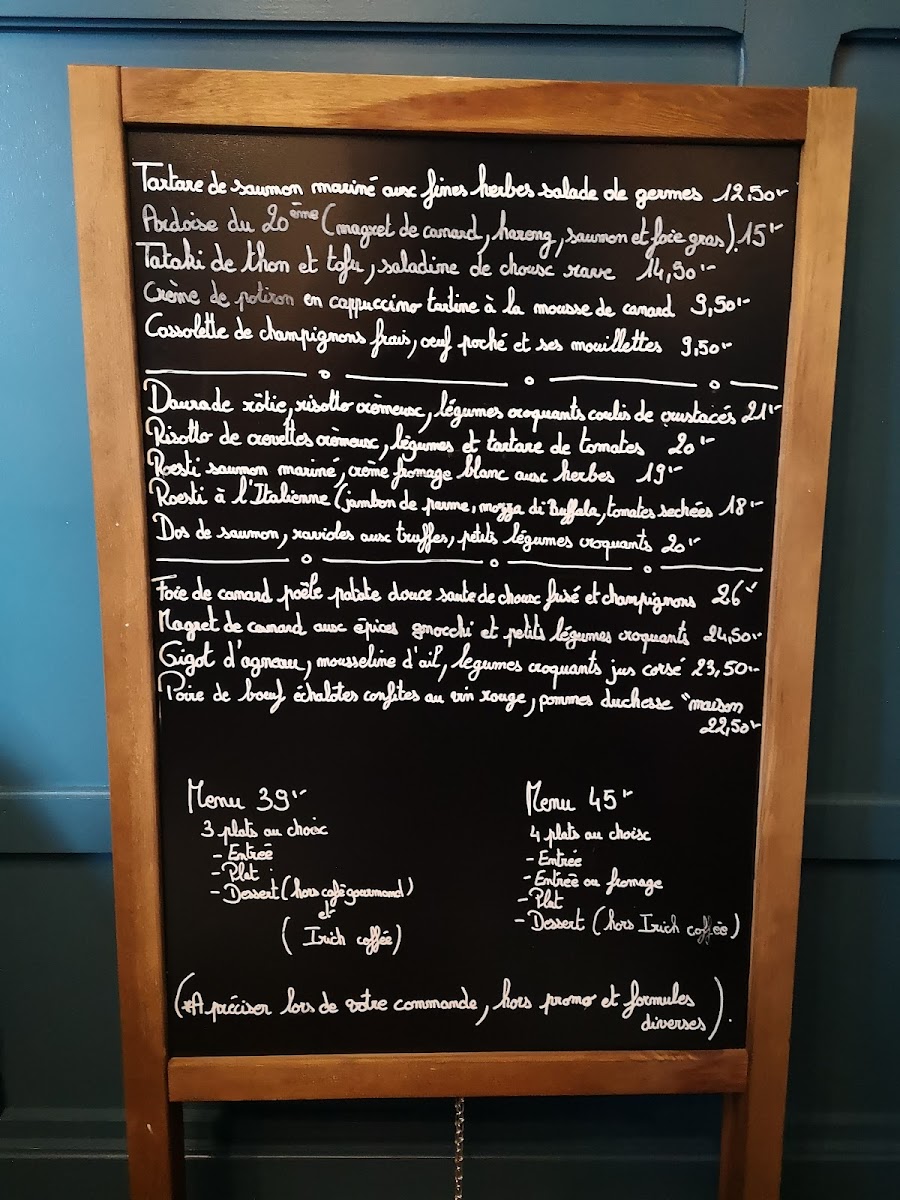 Tartare de saumon mariné aux fines herbes salade de germes 12,50.-
Ardoise du 20ème (magret de canard, hareng, saumon et foie gras) 15.-
Tataki de thon et tofu, saladine de choux rave 14,50.-
Crème de potiron en cappuccino tartine à la mousse de canard 9,50.-
Cassolette de champignons frais, œuf poché et ses mouillettes 9,50.-
Daurade rôtie, risotto crèmeux, légumes croquants coulis de crustacés 21.-
Risotto de crevettes crèmeux, légumes et tartare de tomates 20.-
Roesti saumon mariné, crème fromage blanc aux herbes 19.-
Roesti à l'Italienne (jambon de parme, mozza di Buffala, tomates sechées 18.-
Dos de saumon, ravioles aux truffes, petits légumes croquants 20.-
Foie de canard poêle patate douce saute de choux fusé et champignons 26.-
Magret de canard aux épices gnocchi et petits légumes croquants 24,50.-
Gigot d'agneau, mousseline d'ail, legumes croquants jus corsé 23,50.-
Poire de bœuf échalotes confites au vin rouge, pommes duchesse "maison
22,50.-
Menu 39.-
3 plats au choix
- Entrée
- Plat
- Dessert (hors café gourmand)
et
( Irich coffée)
Menu 45.-
4 plats au choix
- Entrée
- Entrée ou fromage
- Plat
- Dessert (hors Irich coffée)
(*A préciser lors de votre commande, hors promo et formules
diverses).